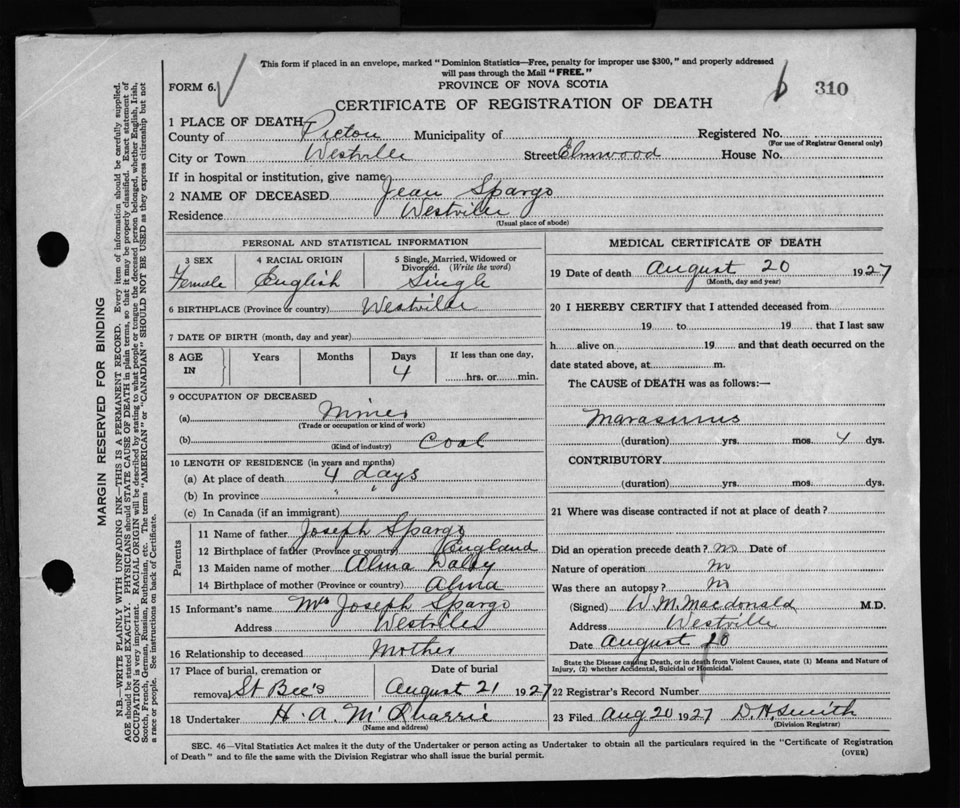 This form if placed in an envelope, marked "Dominion Statistics—Free, penalty for improper use $300," and properly addressed
will pass through the Mail "FREE."
FORM 6.
PROVINCE OF NOVA SCOTIA
b 310
CERTIFICATE OF REGISTRATION OF DEATH
1 PLACE OF DEATH
County of Pictou Municipality of Registered No.
(For use of Registrar General only)
City or Town Westville Street Elmwood House No.
If in hospital or institution, give name
2 NAME OF DECEASED Jean Spargo
Residence Westville
(Usual place of abode)
PERSONAL AND STATISTICAL INFORMATION
3 SEX 4 RACIAL ORIGIN 5 Single, Married, Widowed or
Divorced. (Write the word)
Female English Single
6 BIRTHPLACE (Province or country) Westville
7 DATE OF BIRTH (month, day and year)
8 AGE IN Years Months Days If less than one day,
4 hrs. or min.
9 OCCUPATION OF DECEASED
(a) Miner
(Trade or occupation or kind of work)
(b) Coal
(Kind of industry)
10 LENGTH OF RESIDENCE (in years and months)
(a) At place of death 4 days
(b) In province " "
(c) In Canada (if an immigrant)
Parents
11 Name of father Joseph Spargo
12 Birthplace of father (Province or country) England
13 Maiden name of mother Alma Dalby
14 Birthplace of mother (Province or country) Alma
15 Informant's name Mrs Joseph Spargo
Address Westville
16 Relationship to deceased Mother
17 Place of burial, cremation or Date of burial
removal St Bee's August 21 1927
18 Undertaker H. A. McQuarrie
(Name and address)
MEDICAL CERTIFICATE OF DEATH
19 Date of death August 20 1927
(Month, day and year)
20 I HEREBY CERTIFY that I attended deceased from
19 to 19 that I last saw
h alive on 19 and that death occurred on the
date stated above, at m.
The CAUSE of DEATH was as follows:—
Marasmus
(duration) yrs. mos. 4 dys.
CONTRIBUTORY
(duration) yrs. mos. dys.
21 Where was disease contracted if not at place of death?
Did an operation precede death? no Date of
Nature of operation no
Was there an autopsy? no
(Signed) W. M. Macdonald M.D.
Address Westville
Date August 20
State the Disease causing Death, or in death from Violent Causes, state (1) Means and Nature of
Injury, (2) whether Accidental, Suicidal or Homicidal.
22 Registrar's Record Number
23 Filed Aug 20 1927 D. H. Smith
(Division Registrar)
SEC. 46—Vital Statistics Act makes it the duty of the Undertaker or person acting as Undertaker to obtain all the particulars required in the "Certificate of Registration
of Death" and to file the same with the Division Registrar who shall issue the burial permit.
(OVER)
MARGIN RESERVED FOR BINDING
N.B.—WRITE PLAINLY WITH UNFADING INK—THIS IS A PERMANENT RECORD. Every item of information should be carefully supplied.
AGE should be stated EXACTLY. PHYSICIANS should STATE CAUSE OF DEATH in plain terms, so that it may be properly classified. Exact statement of
OCCUPATION is very important. RACIAL ORIGIN will be described by stating to what people or tongue the deceased person belonged, whether English, Irish,
Scotch, French, German, Russian, Ruthenian, etc. The terms "AMERICAN" or "CANADIAN" SHOULD NOT BE USED as they express citizenship but not
a race or people. See instructions on back of Certificate.